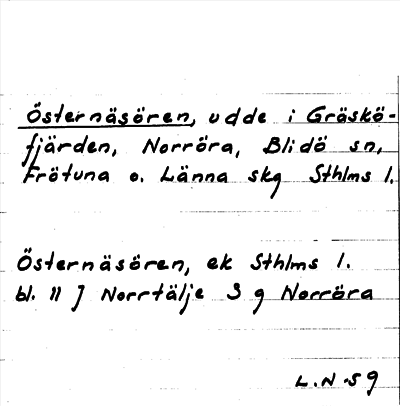 Östernäsören, udde i Gräskö-
fjärden, Norröra, Blidö sn,
Frötuna o. Länna skg Sthlms l.
Östernäsören, ek Sthlms l.
bl. 11 J Norrtälje S g Norröra
L.N-59